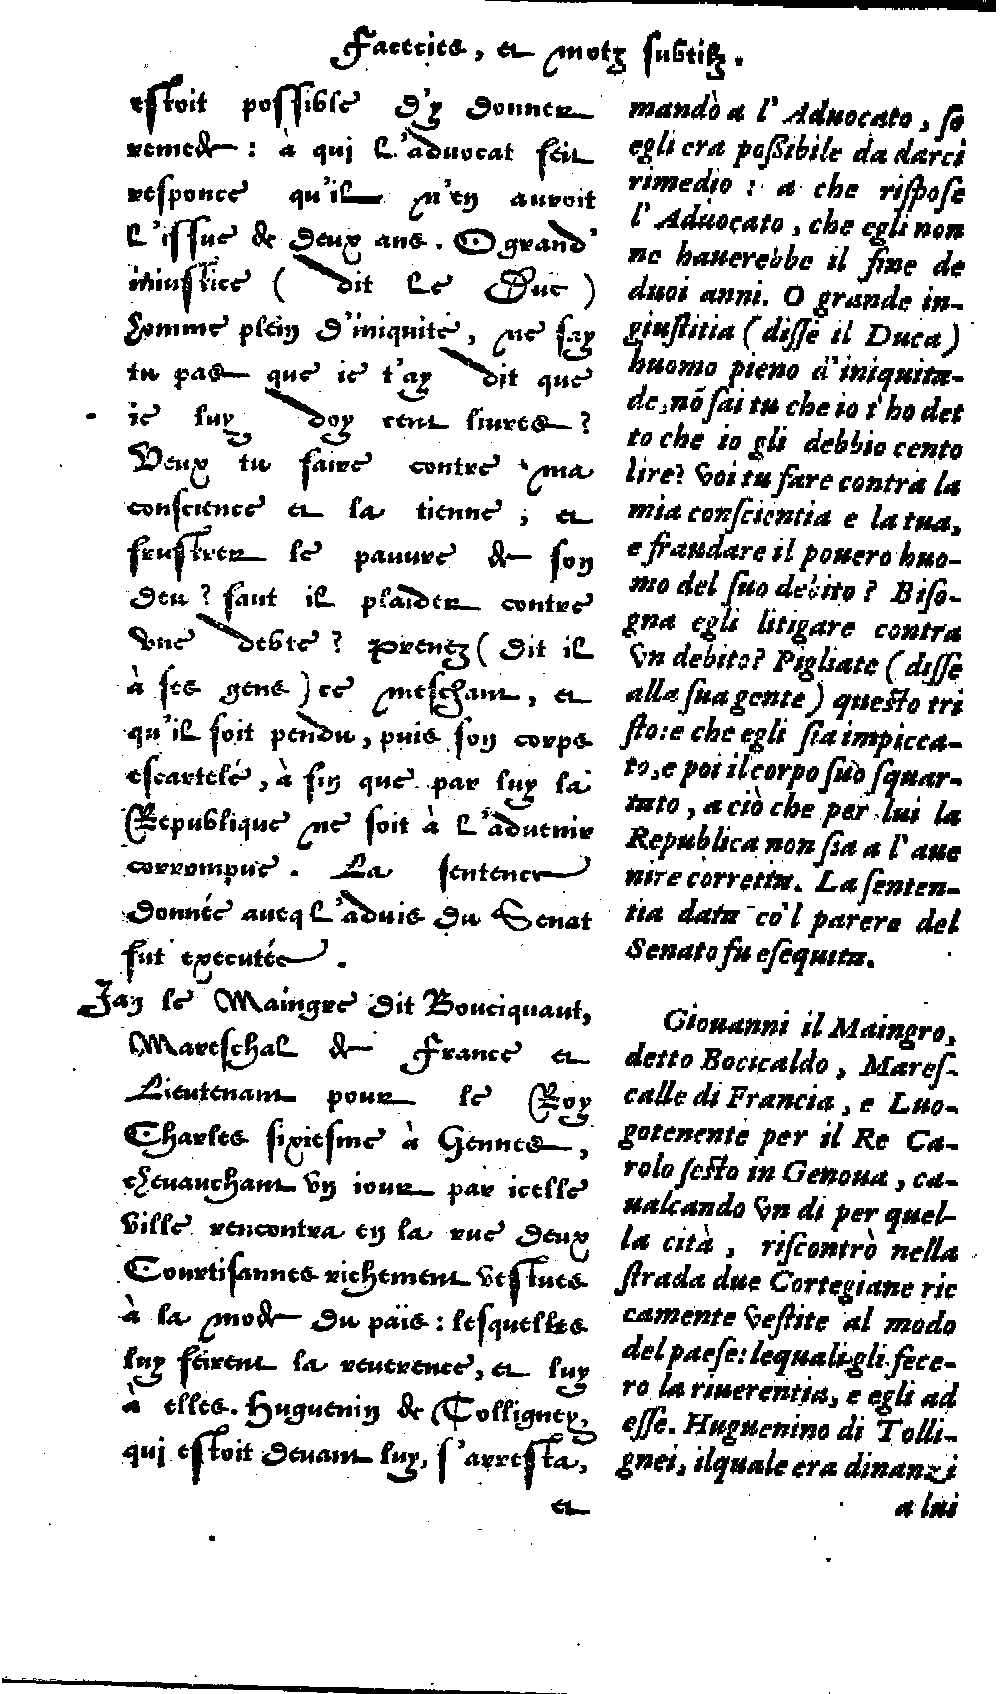 Facecies, et motz subtilz.
estoit possible d'y donner
remede : à qui l'aduocat feit
responce qu'il n'en auroit
l'issue de deux ans. O grand'
iniustice ( dit le Duc )
homme plein d'iniquité, ne say
tu pas que ie t'ay dit que
ie luy doy cent liures ?
Veux tu faire contre ma
conscience et la tienne, et
frustrer le pauure de son
deu ? faut il plaider contre
vne debte ? Prenez ( dit il
à ses gens ) ce meschant, et
qu'il soit pendu, puis son corps
escartelé, à fin que par luy la
Republique ne soit à l'aduenir
corrompue. La sentence
donnée auecq l'aduis du Senat
fut executée.
Jan le Maingre dit Bouciquaut,
Mareschal de France et
Lieutenant pour le Roy
Charles sixiesme à Gennes,
cheuauchant vn iour par icelle
ville rencontra en la rue deux
Courtisannes richement vestues
à la mode du païs : lesquelles
luy feirent la reuerence, et luy
à elles. Huguenin de Colligney,
qui estoit deuant luy, s'arresta,
et
mandò a l'Aduocato, se
egli era poßibile da darci
rimedio : a che rispose
l'Aduocato, che egli non
ne hauerebbe il fine de
duoi anni. O grande in-
giustitia ( disse il Duca )
huomo pieno d'iniquita-
de, nõ sai tu che io t'ho det
to che io gli debbio cento
lire? Voi tu fare contra la
mia conscientia e la tua,
e fraudare il pouero huo-
mo del suo debito ? Biso-
gna egli litigare contra
vn debito? Pigliate ( disse
alla sua gente ) questo tri
sto: e che egli sia impicca-
to, e poi il corpo suo squar-
tato, a ciò che per lui la
Republica non sia a l'aue
nire corretta. La senten-
tia data co'l parere del
Senato fu esequita.
Giouanni il Maingro,
detto Bocicaldo, Mares-
calle di Francia, e Luo-
gotenente per il Re Ca-
rolo sesto in Genoua, ca-
ualcando vn di per quel-
la cità, riscontrò nella
strada due Cortegiane ric
camente vestite al modo
del paese: lequali gli fece-
ro la riuerentia, e egli ad
esse. Huguenino di Tolli-
gnei, ilquale era dinanzi
a lui